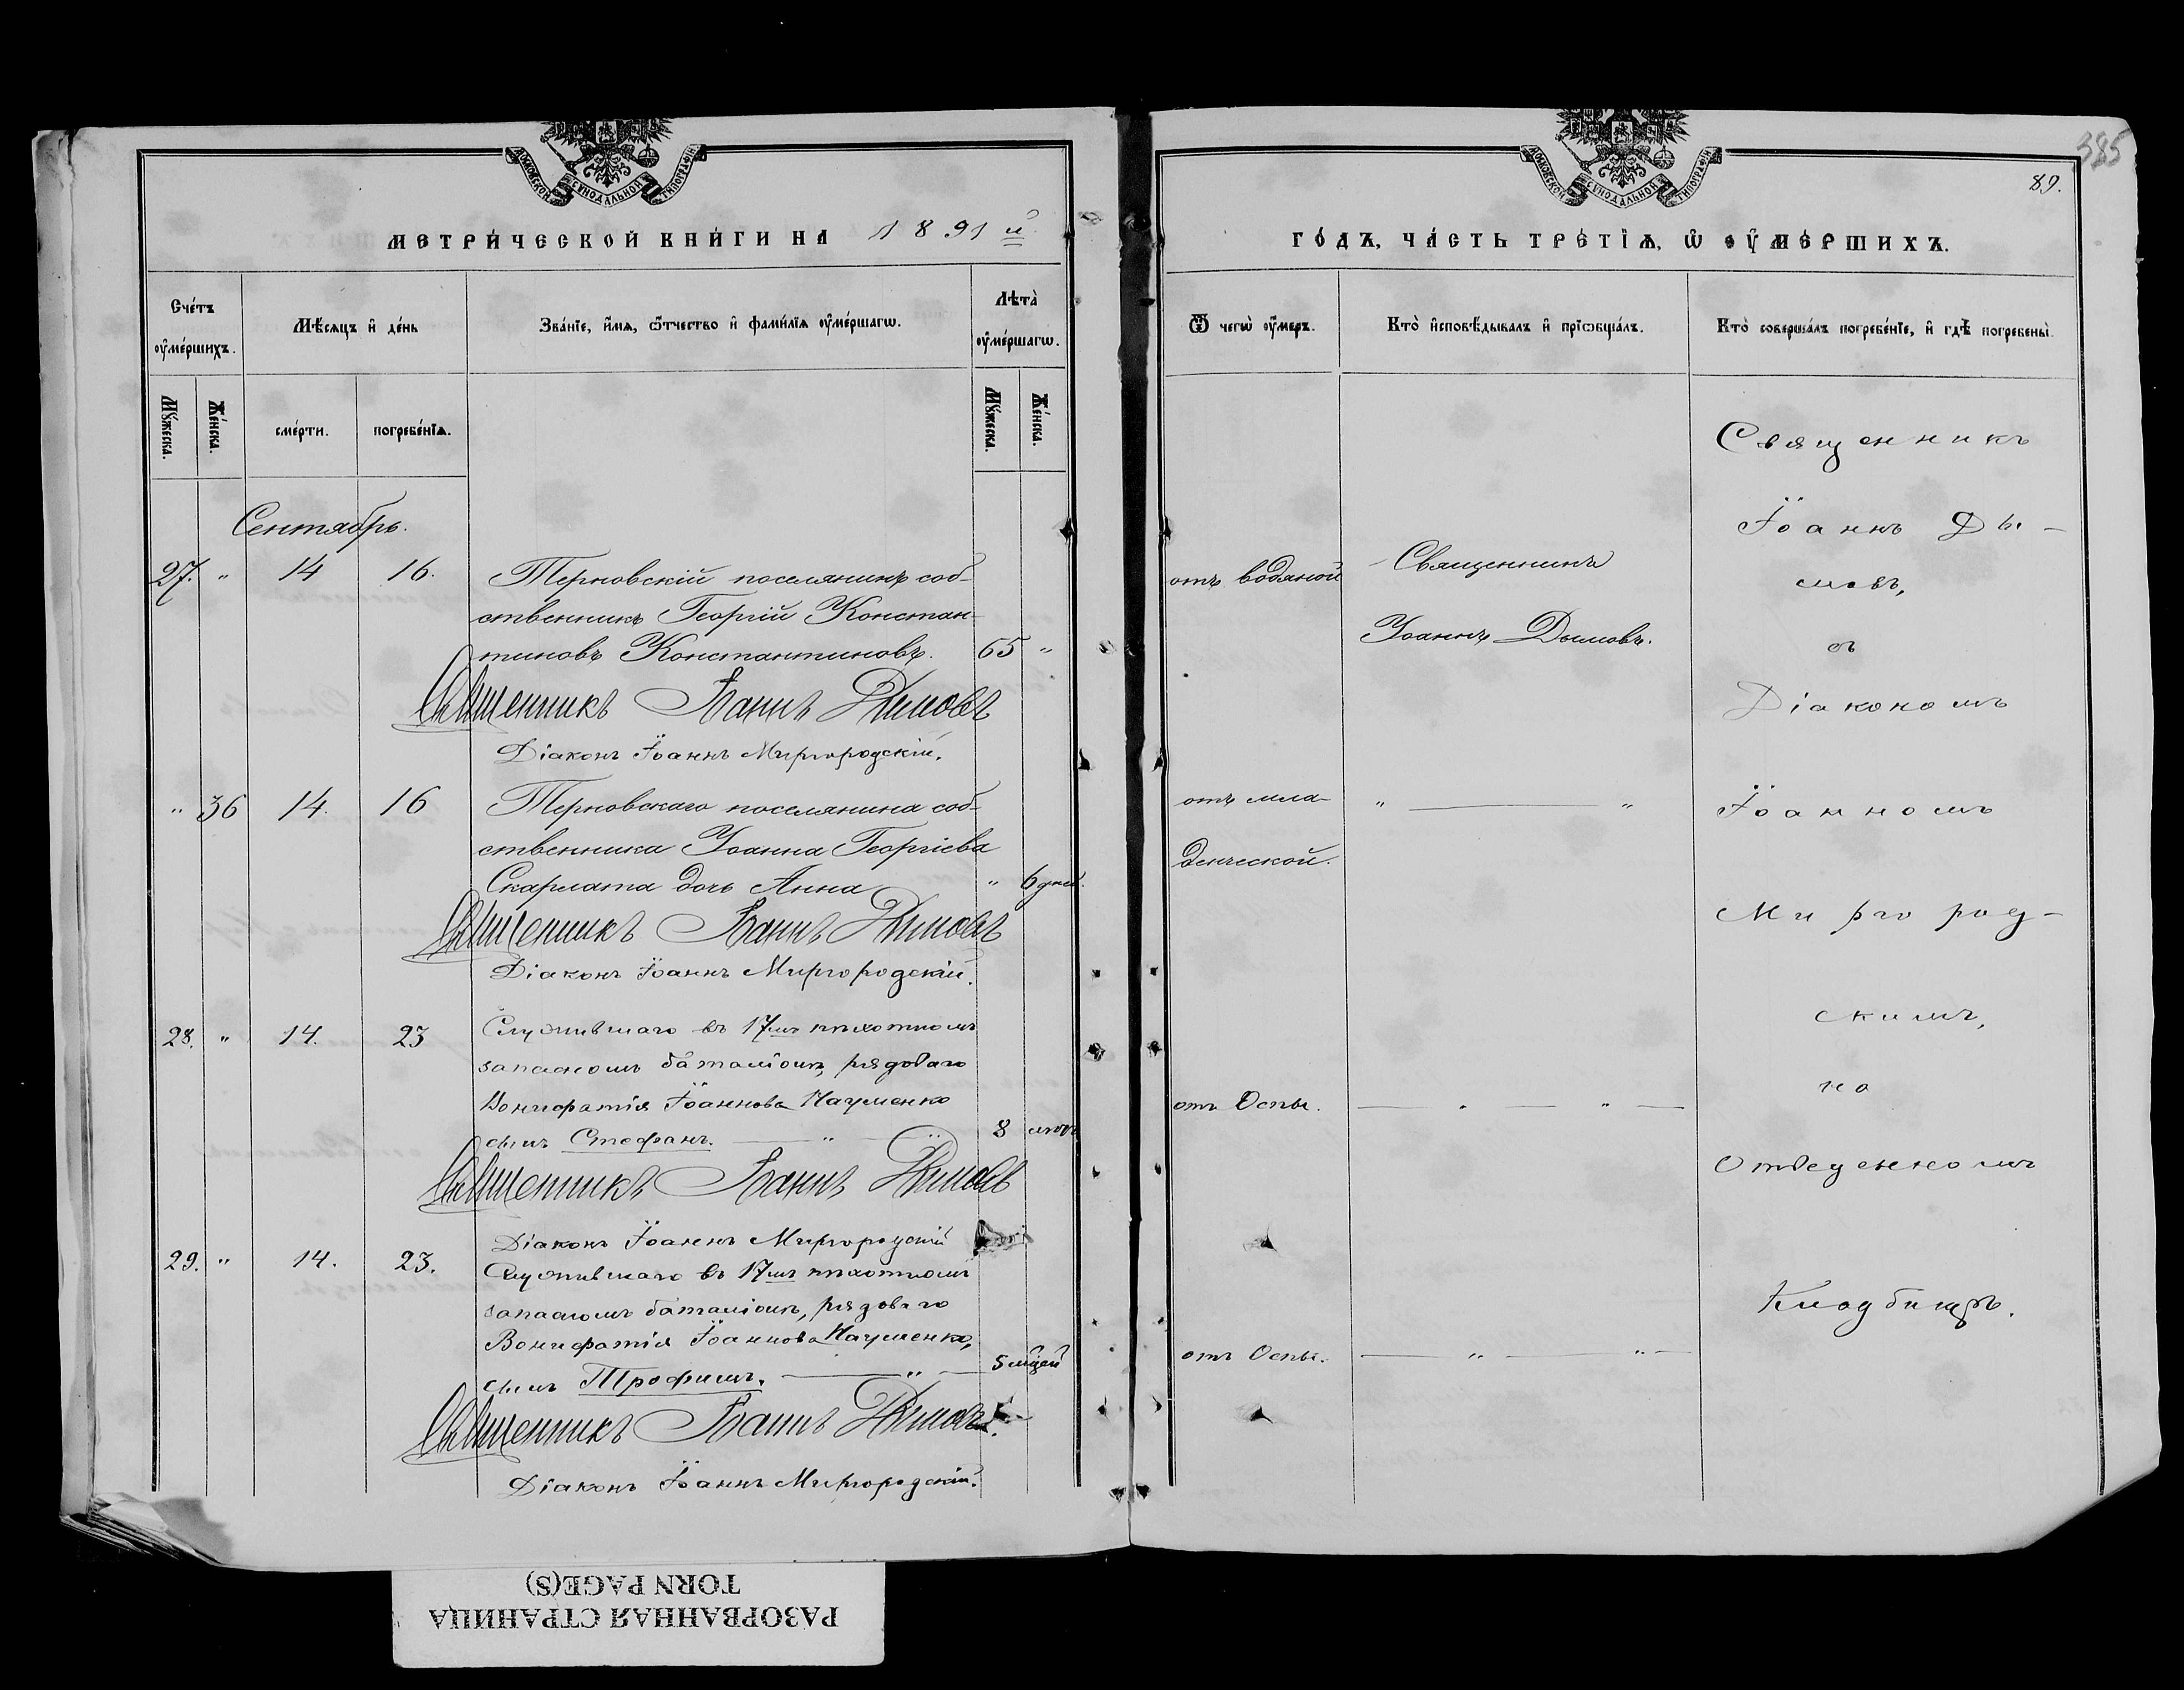 МОСКОВСКОЙ СѴНОДАЛЬНОЙ ТИПОГРАФІИ
МЕТРИ́ЧЕСКОЙ КНИ́ГИ НА 1891й
Сче́тъ ᲂу҆ме́ршихъ.
Мѣ́сяцъ и҆ де́нь
Зва́нїе, и҆́мя, ѻ҆́тчество и҆ фами́лїя ᲂу҆ме́ршагѡ.
Лѣта̀ ᲂу҆ме́ршагѡ.
Мꙋ́жеска.
Же́нска.
сме́рти.
погребе́нїѧ.
Мꙋ́жеска.
Же́нска.
Сентябрь.
27. " 14 16. Терновскій поселянинъ соб-
ственникъ Георгій Констан-
тиновъ Константиновъ. 65 "
Священникъ Іоаннъ Дымовъ
Діаконъ Іоаннъ Миргородскій.
" 36 14. 16 Терновскаго поселянина соб-
ственника Іоанна Георгіева
Скарлата дочь Анна " 6 дней.
Священникъ Іоаннъ Дымовъ
Діаконъ Іоаннъ Миргородскій.
28. " 14. 23 Служившаго въ 17мъ пѣхотномъ
запасномъ баталіонѣ, рядоваго
Вонифатія Іоаннова Науменко
сынъ Стефанъ. " " 8 лѣтъ
Священникъ Іоаннъ Дымовъ
Діаконъ Іоаннъ Миргородскій
29. " 14. 23. Служившаго въ 17мъ пѣхотномъ
запасномъ баталіонѣ, рядоваго
Вонифатія Іоаннова Науменко,
сынъ Трофимъ. " 5 мѣцей
Священникъ Іоаннъ Дымовъ.
Діаконъ Іоаннъ Миргородскій.
385
89.
МОСКОВСКОЙ СѴНОДАЛЬНОЙ ТИПОГРАФІИ
ГО́ДЪ, ЧА́СТЬ ТРЕ́ТЇѦ, Ѡ҆ ОУ҆МЕ́РШИХЪ.
Ѿ чегѡ̀ ᲂу҆́меръ.
Кто̀ и҆сповѣ́дывалъ и҆ прїѡбща́лъ.
Кто̀ соверша́лъ погребе́нїе, и҆ гдѣ̀ погребены̀.
отъ водяной
Священникъ
Іоаннъ Дымовъ.
отъ мла-
денческой.
" "
отъ Оспы. " "
отъ Оспы. " "
Священникъ
Іоаннъ Ды-
мовъ,
съ
Діакономъ
Іоанномъ
Миргород-
скимъ,
на
Отведенномъ
Кладбищѣ.
РАЗОРВАННАЯ СТРАНИЦА
TORN PAGE(S)